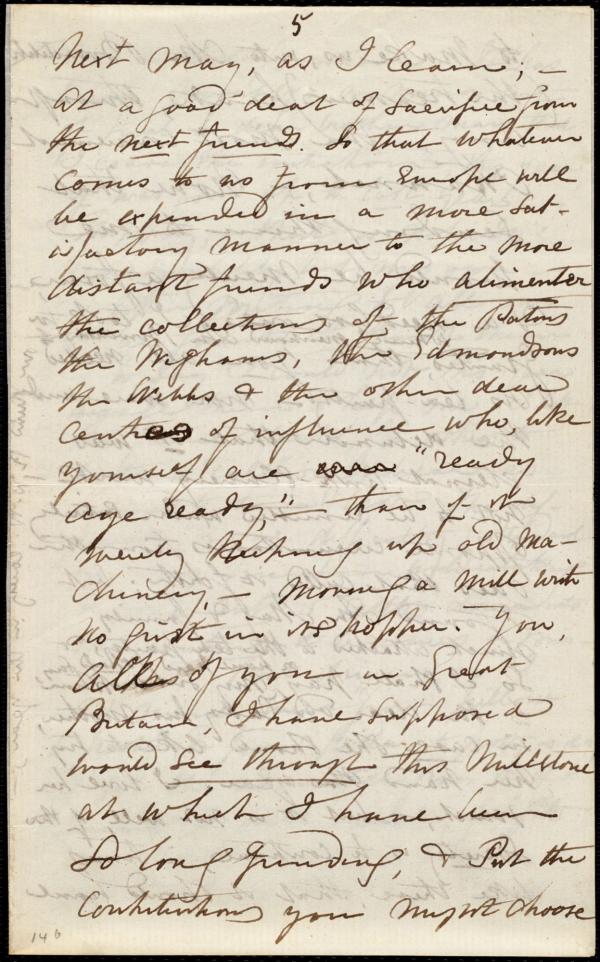 5
next May, as I learn; —
at a good deal of sacrifice from
the next friends. So that whatever
comes to us from Europe will
be expended in a more sat-
isfactory manner to the more
distant friends who alimenter
the collections of the Patons
the Wighams, the Edmondsons
the Webbs & the other dear
centres of influence who, like
yourself are "ready
aye ready," — than if it
merely keeping up old ma-
chinery, — moving a mill with
no grist in its hopper. You,
all of you in Great
Britain, I have supposed
would see through this Millstone
at which I have been
so long grinding, & put the
contributions you might choose
146